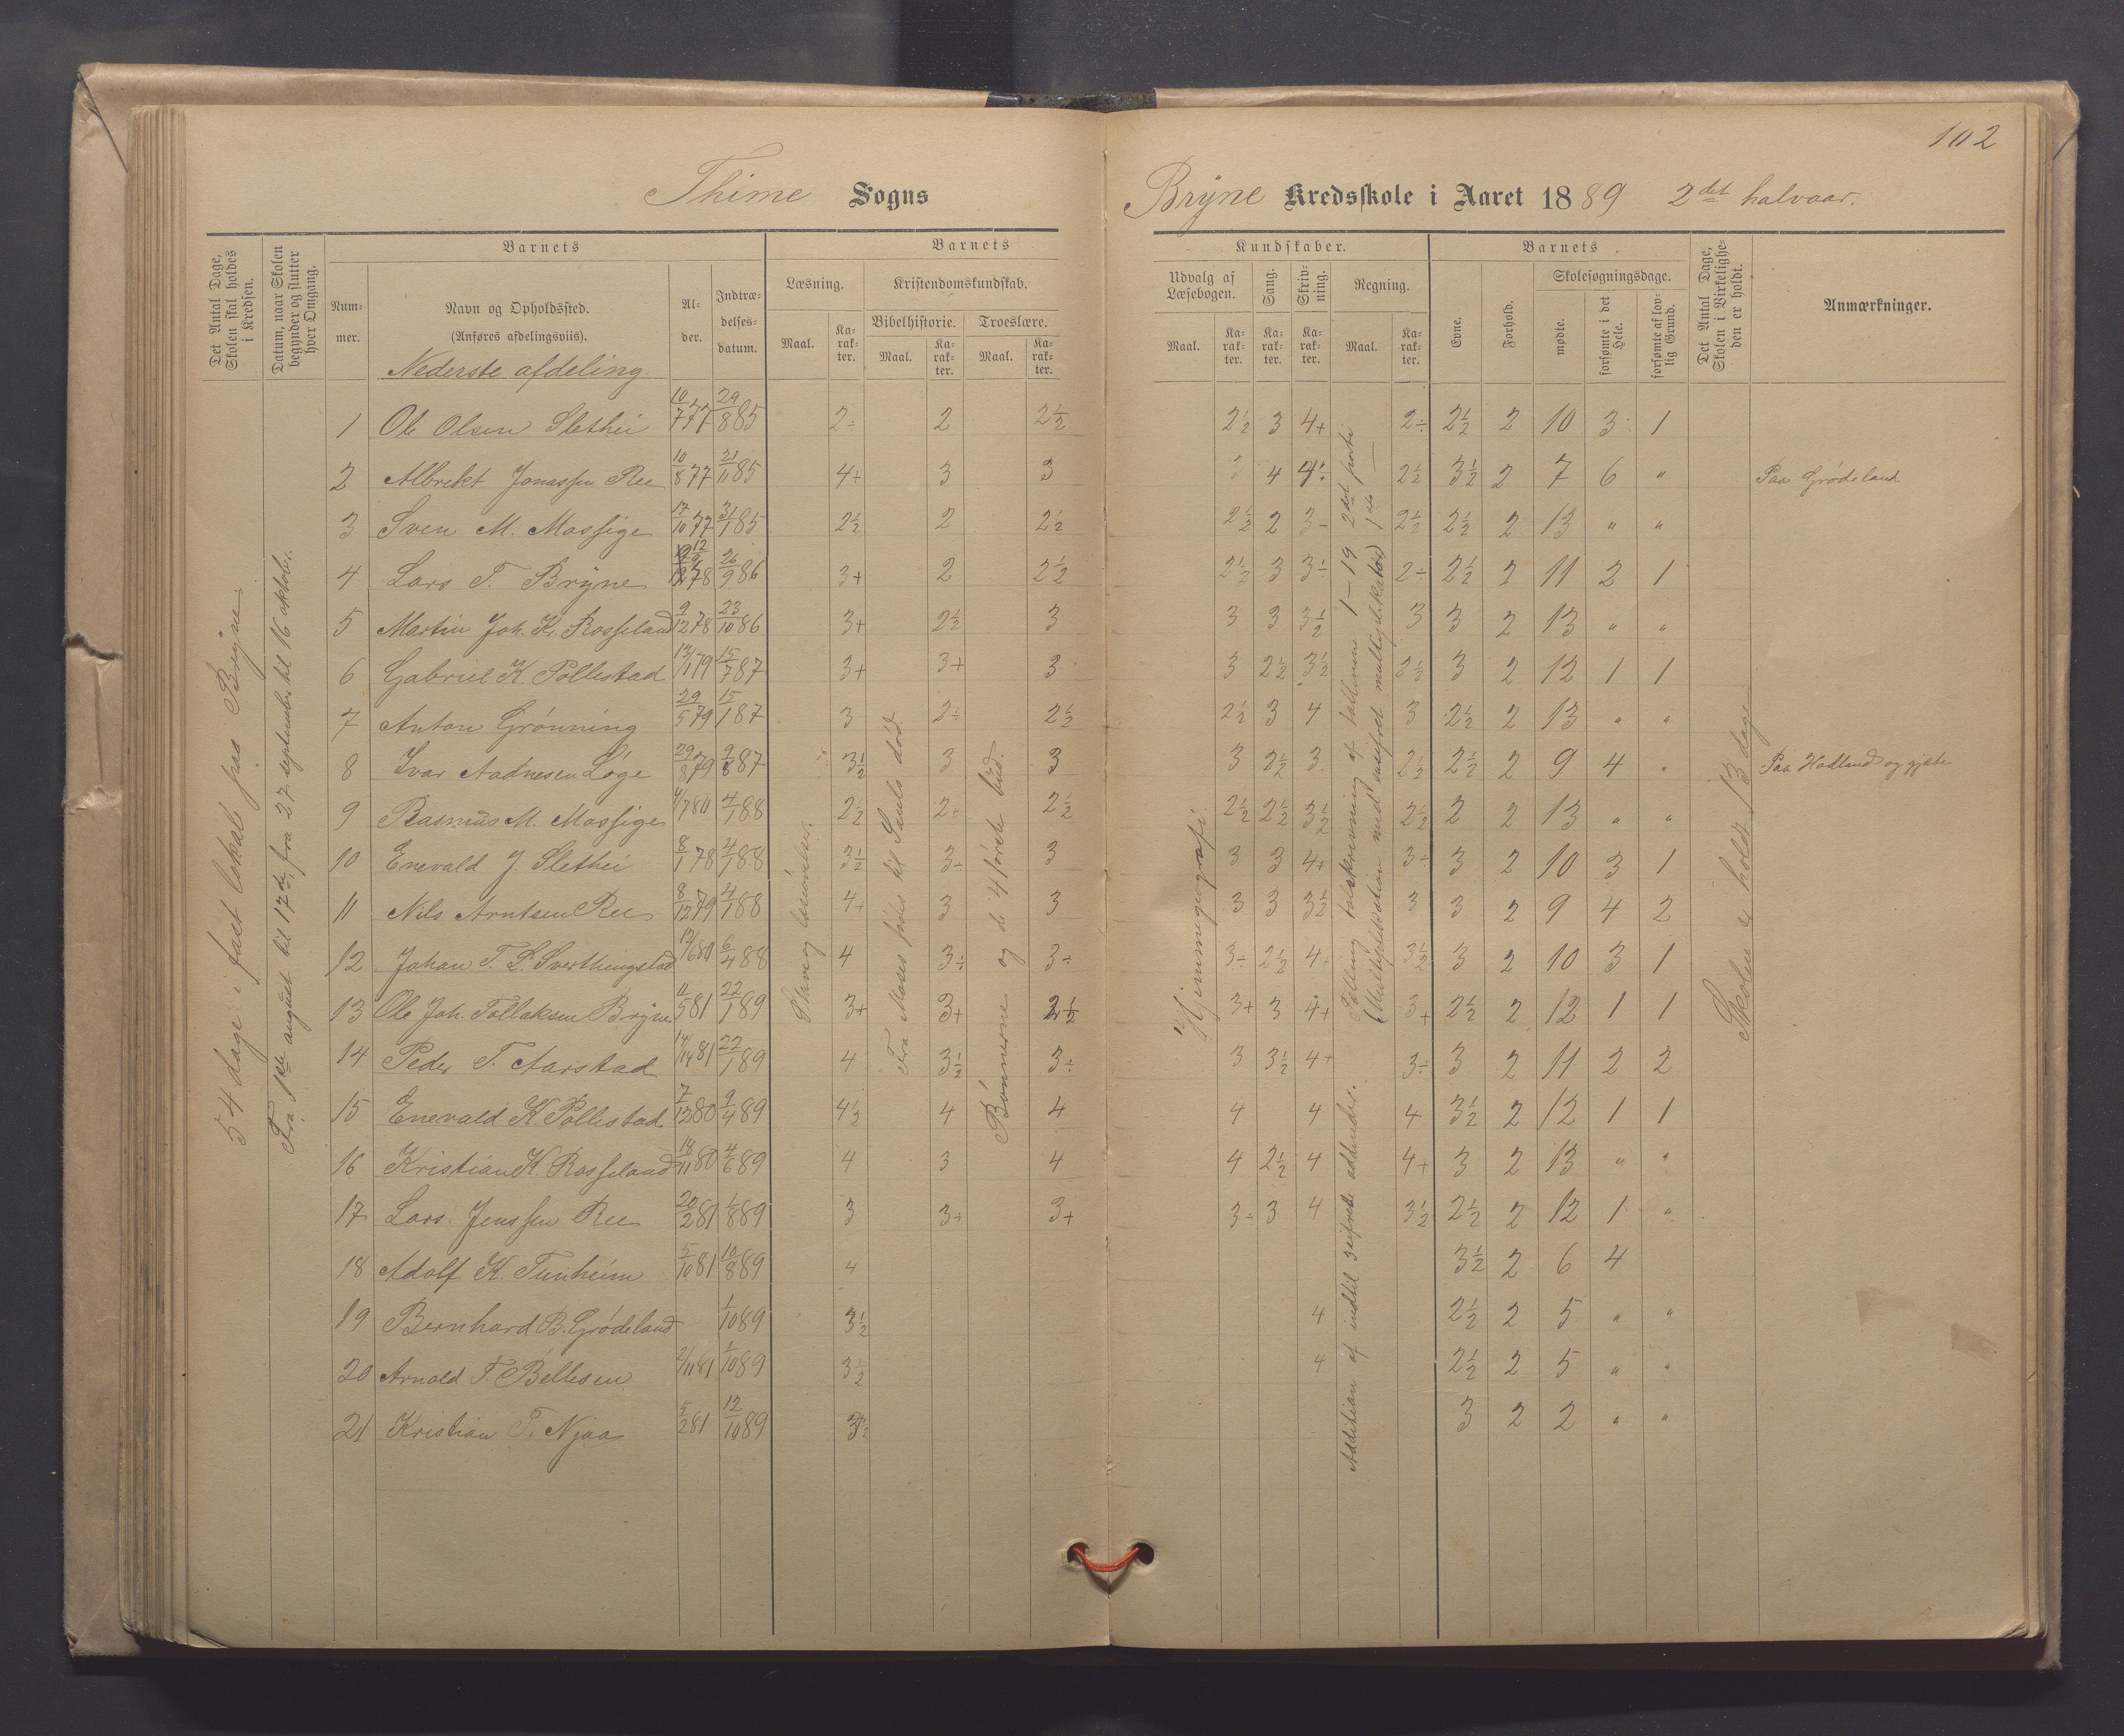 102
Thime Sogns
Bryne Kredsskole i Aaret 1889 2det halvaar.
Det Antal Dage, Skolen skal holdes i Kredsen.
Datum, naar Skolen begynder og slutter hver Omgang.
Barnets
Nummer.
Navn og Opholdssted. (Anføres afdelingsviis).
Alder.
Indtrædelsesdatum.
Barnets
Læsning.
Maal.
Karakter.
Kristendomskundskab.
Bibelhistorie.
Maal.
Karakter.
Troeslære.
Maal.
Karakter.
Kundskaber.
Udvalg af Læsebogen.
Maal.
Karakter.
Sang.
Karakter.
Skrivning.
Karakter.
Regning.
Maal.
Karakter.
Barnets
Evne.
Forhold.
Skolesøgningsdage.
mødte.
forsømte i det Hele.
forsømte af lovlig Grund.
Det Antal Dage, Skolen i Virkeligheden er holdt.
Anmærkninger.
Nederste afdeling
54 dage i fast lokale paa Bryne.
Fra 1ste august til 17de, fra 27 september til 16 oktober.
Stave og læseøvelser.
Fra Moses fødes til Sauls død.
Bønnerne og de 4 første bud.
Hjemmegeografi.
Addition af indtil 3cifrede addender.
Skolen er holdt 13 dage
1 Ole Olsen Slethei 10/7 77 29/8 85 2÷ 2 2½ 2½ 3 4+ 2÷ 2½ 2 10 3 1
2 Albrekt Jonassen Ree 10/8 77 21/11 85 4+ 3 3 4 4÷ 2½ 3½ 2 7 6 " Paa Grødeland
3 Sven M. Mossige 17/10 77 31/1 85 2½ 2 2½ 2½ 2 3- 2½ 2½ 2 13 " "
4 Lars T. Bryne 78 26/9 86 3+ 2 2½ 2½ 3 3÷ 2÷ 2½ 2 11 2 1
5 Martin Joh. K. Rosseland 9/12 78 23/10 86 3+ 2½ 3 3 3 3½ 3 3 2 13 " "
6 Gabriel K. Pollestad 13/1 79 15/7 87 3+ 3+ 3 3 2½ 3½ 2½ 3 2 12 1 1
7 Anton Grønning 29/5 79 15/1 87 3 2÷ 2½ 2½ 3 4 3 2½ 2 13 " "
8 Ivar Aadnesen Løge 29/8 79 9/8 87 3½ 3 3 3 2½ 3 2½ 2½ 2 9 4 " Paa Hadland og gjæte
9 Rasmus M. Mossige 4/7 80 4/1 88 2½ 2÷ 2½ 2½ 2½ 3½ 2½ 2 2 13 " "
10 Enevald J. Slethei 8/1 78 4/1 88 3½ 3÷ 3 3 3 4+ 3÷ 3 2 10 3 1
11 Nils Arntsen Ree 8/12 79 4/1 88 4+ 3 3 3 3 3½ 3 3 2 9 4 2
12 Johan T. S. Sverthingstad 12/6 80 6/4 88 4 3÷ 3÷ 3÷ 2½ 4÷ 3½ 3 2 10 3 1
13 Ole Joh. Tollaksen Bryne 11/5 81 22/1 89 3+ 3+ 2½ 3+ 3 4+ 3+ 2½ 2 12 1 1
14 Peder T. Aarstad 81 22/1 89 4 3½ 3÷ 3 3½ 4+ 3÷ 3 2 11 2 2
15 Enevald K. Pollestad 7/12 80 9/4 89 4½ 4 4 4 4 4 3½ 2 12 1 1
16 Kristian K. Rosseland 18/11 80 4/6 89 4 3 4 4 2½ 4 4+ 3 2 13 " "
17 Lars Jenssen Ree 20/2 81 1/8 89 3 3÷ 3+ 3÷ 3 4 3½ 2½ 2 12 1 "
18 Adolf K. Tunheim 5/10 81 10/8 89 4 3½ 2 6 4
19 Bernhard B. Grødeland 1/10 89 3½ 4 2½ 2 5 " "
20 Arnold T. Bellesen 2/11 81 1/10 89 3½ 4 2½ 2 5 " "
21 Kristian T. Njaa 5/2 81 12/10 89 3½ 3 2 2 " "